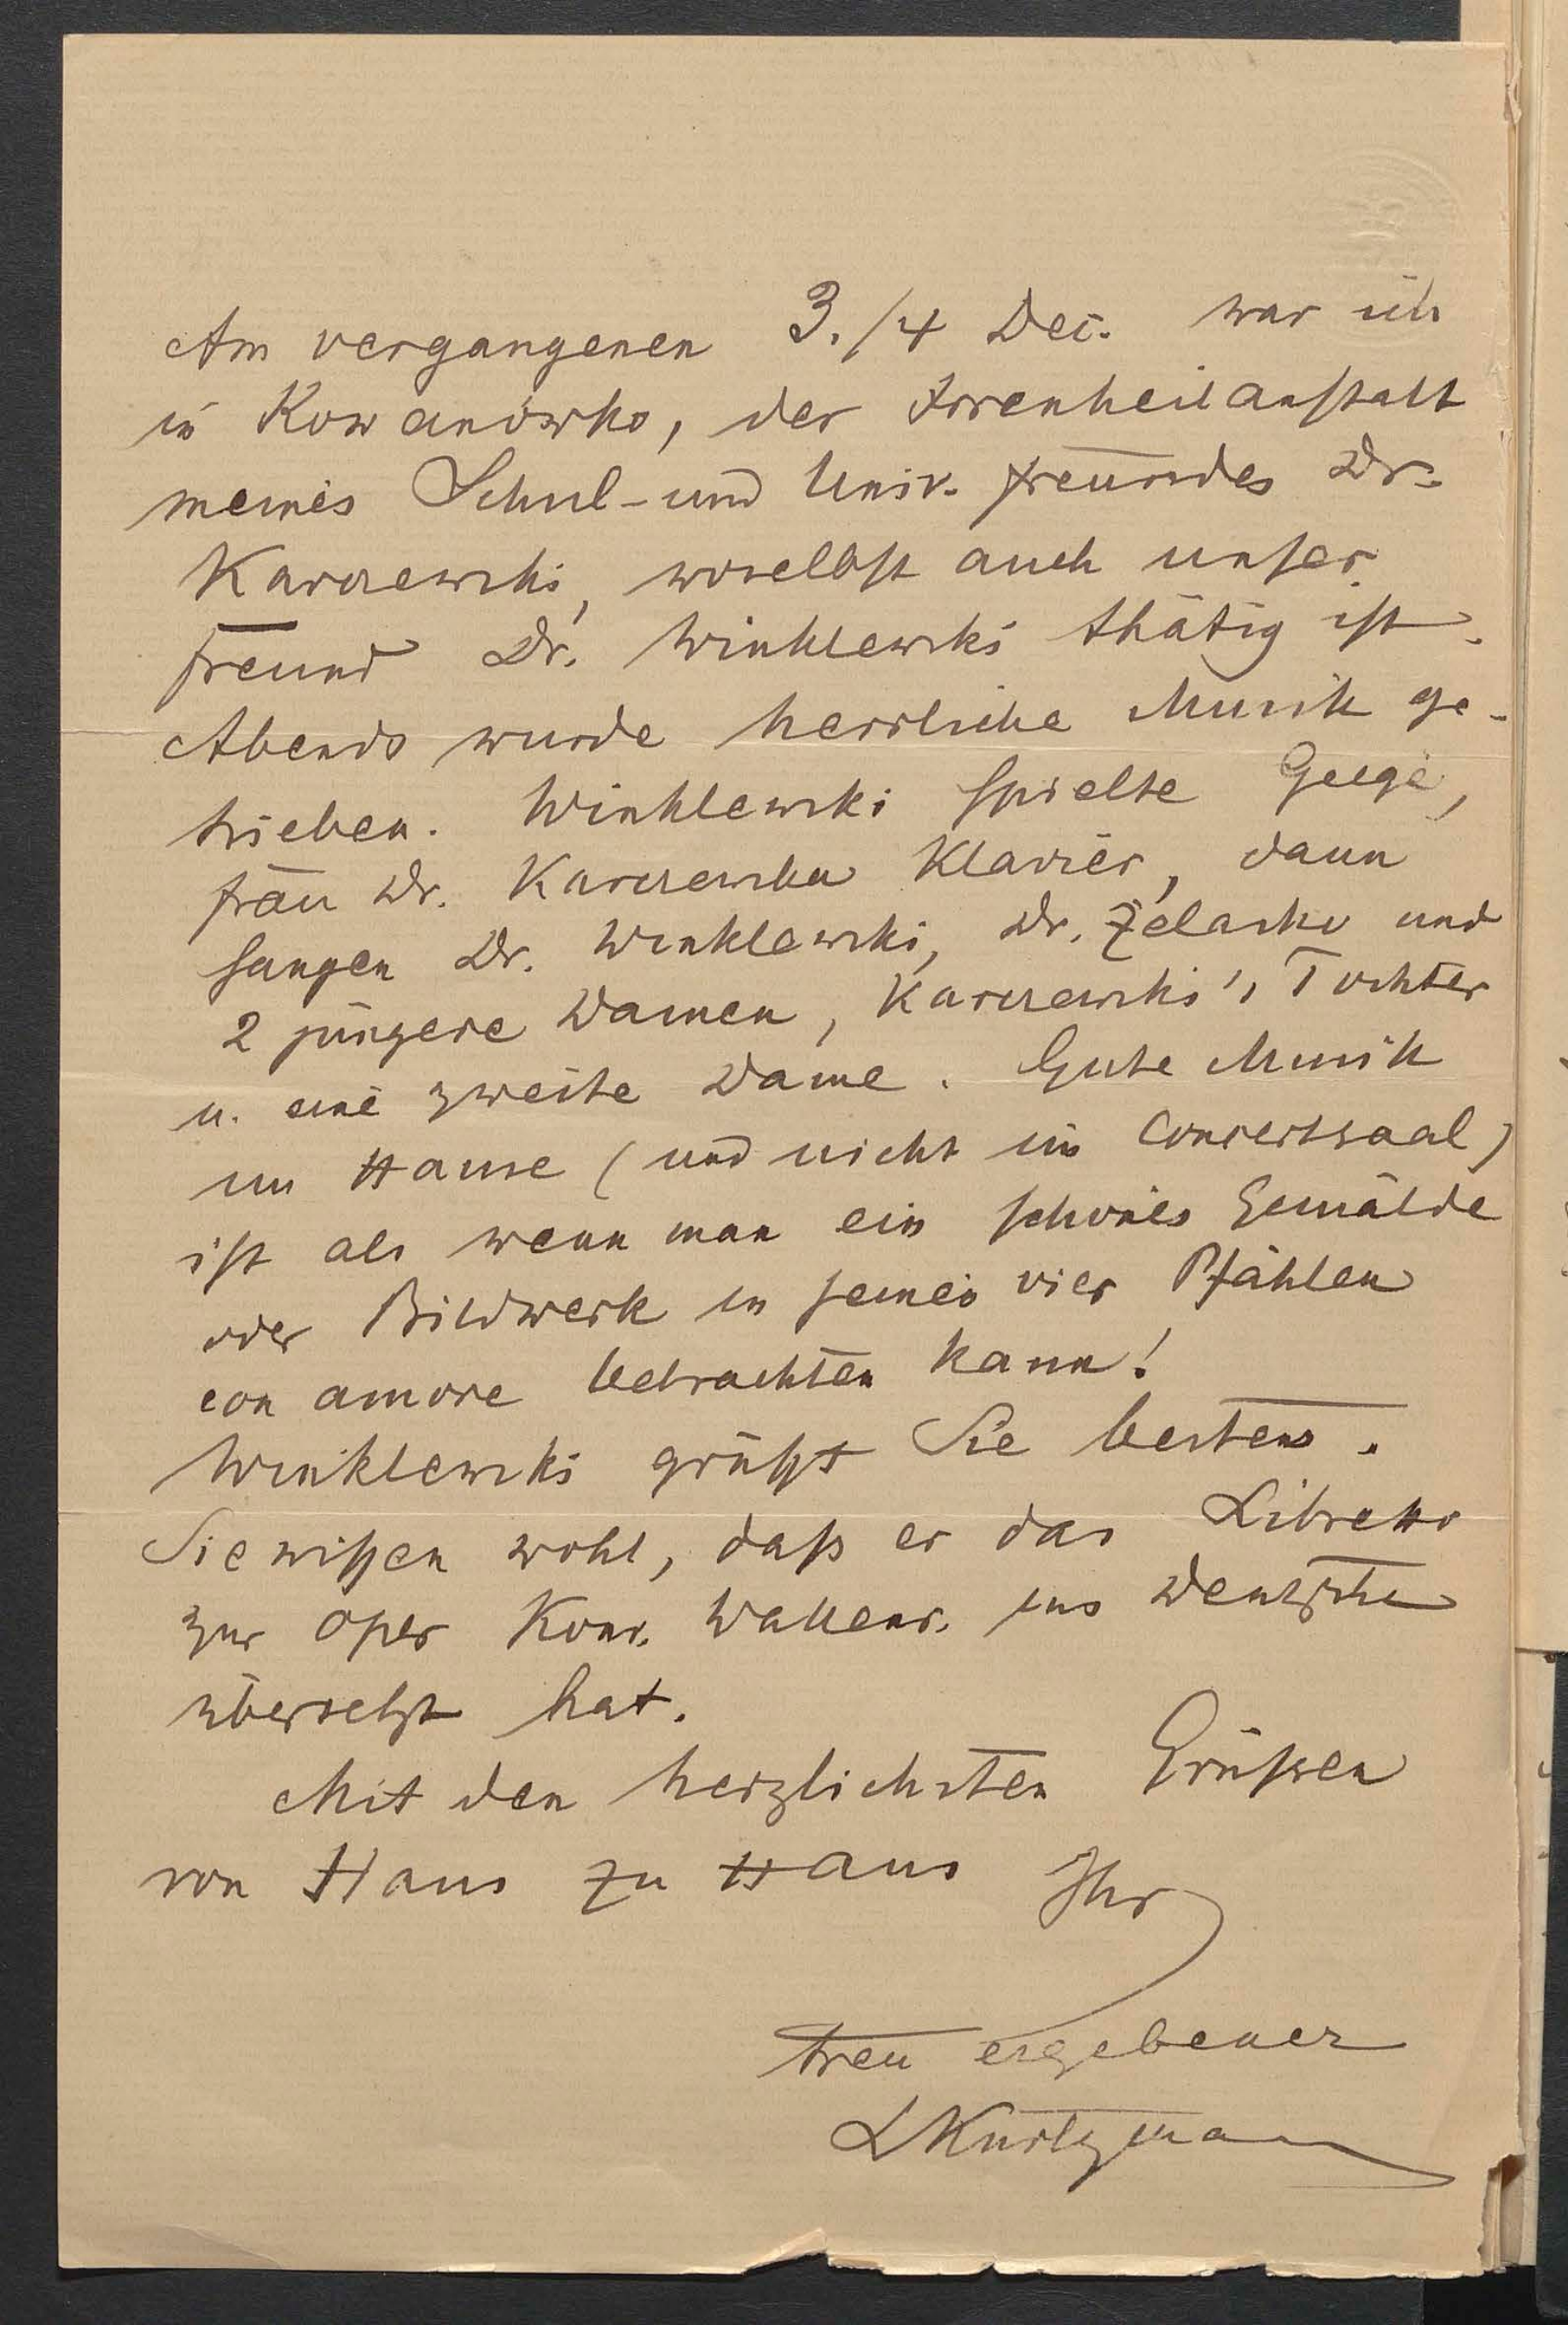 Am vergangenen 3./4 Dec. war ich
in Kowanówko, der Irrenheilanstalt
meines Schul- und Univ. freundes Dr.
Karczewski, woselbst auch unser
freund Dr. Winklewski thätig ist.
Abends wurde herrliche Musik ge-
trieben. Winklewski spielte Geige,
frau Dr. Karczewska Klavier, dann
sangen Dr. Winklewski, Dr. Zelasko und
2 jüngere Damen, Karczewski's Tochter
u. eine zweite Dame. Gute Musik
im Hause (und nicht im Concertsaal)
ist als wenn man ein schönes Gemälde
oder Bildwerk in seinen vier Pfählen
con amore betrachten kann!
Winklewski grüßt Sie bestens.
Sie wißen wohl, daß er das Libretto
zur Oper Konr. Wallenr. ins Deutsche
übersetzt hat.
Mit den herzlichsten Grüßen
von Haus zu Haus Ihr
treu ergebener
LKurtzmann